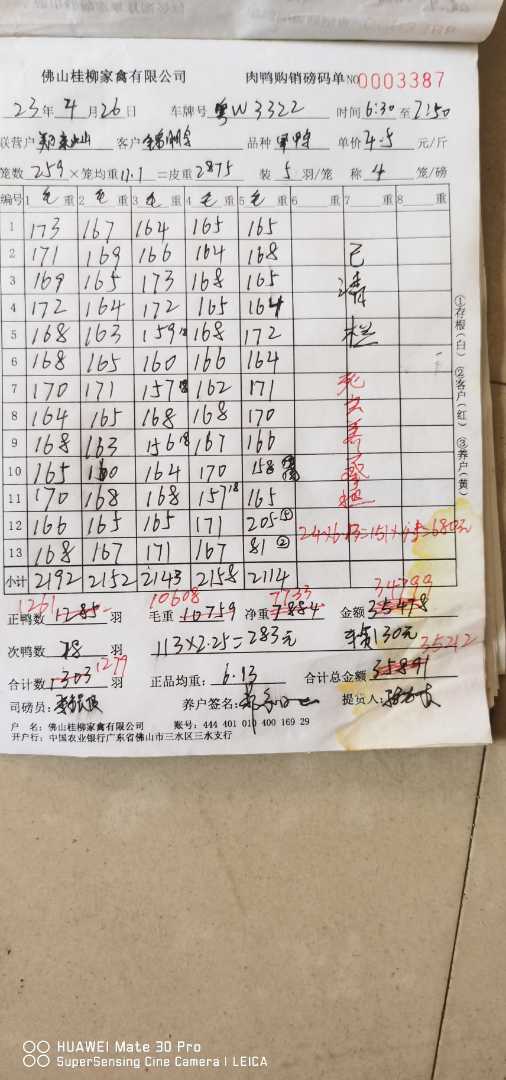 佛山桂柳家禽有限公司 肉鸭购销磅码单 NO 0003387
23年4月26日 车牌号 粤W3322 时间 6:30至7:50
联营户 客户 品种 单价 4.5 元/斤
笼数 259 ×笼均重 11.1 =皮重 2875 装 5 羽/笼 称 4 笼/磅
编号 1 毛 重 2 毛 重 3 毛 重 4 毛 重 5 毛 重 6 重 7 重 8 重
1 173 167 164 165 165
2 171 169 166 164 168 已
3 169 165 173 168 165 清
4 172 164 172 165 164
5 168 163 159 168 172 栏
6 168 165 160 166 164
7 170 171 157 18 162 171 死
8 164 165 168 168 170
9 168 163 156 18 167 166
10 165 160 164 170 158
11 170 168 168 157 18 165
12 166 165 165 171 205 ① 24×6.13=151×4.5=680元
13 168 167 171 167 81 ②
小计 2192 2152 2143 2158 2114
1261 10608 7733 34799
正鸭数 1285 羽 毛重 10759 净重 7884 金额 35478
次鸭数 18 羽 113×2.25=283元 130元 35212
合计数 1303 1279 羽 正品均重: 6.13 合计总金额
司磅员: 养户签名: 提货人:
户 名: 佛山桂柳家禽有限公司 账号: 444 401 010 400 169 29
开户行: 中国农业银行广东省佛山市三水区三水支行
①存根(白) ②客户(红) ③养户(黄)
HUAWEI Mate 30 Pro
SuperSensing Cine Camera | LEICA